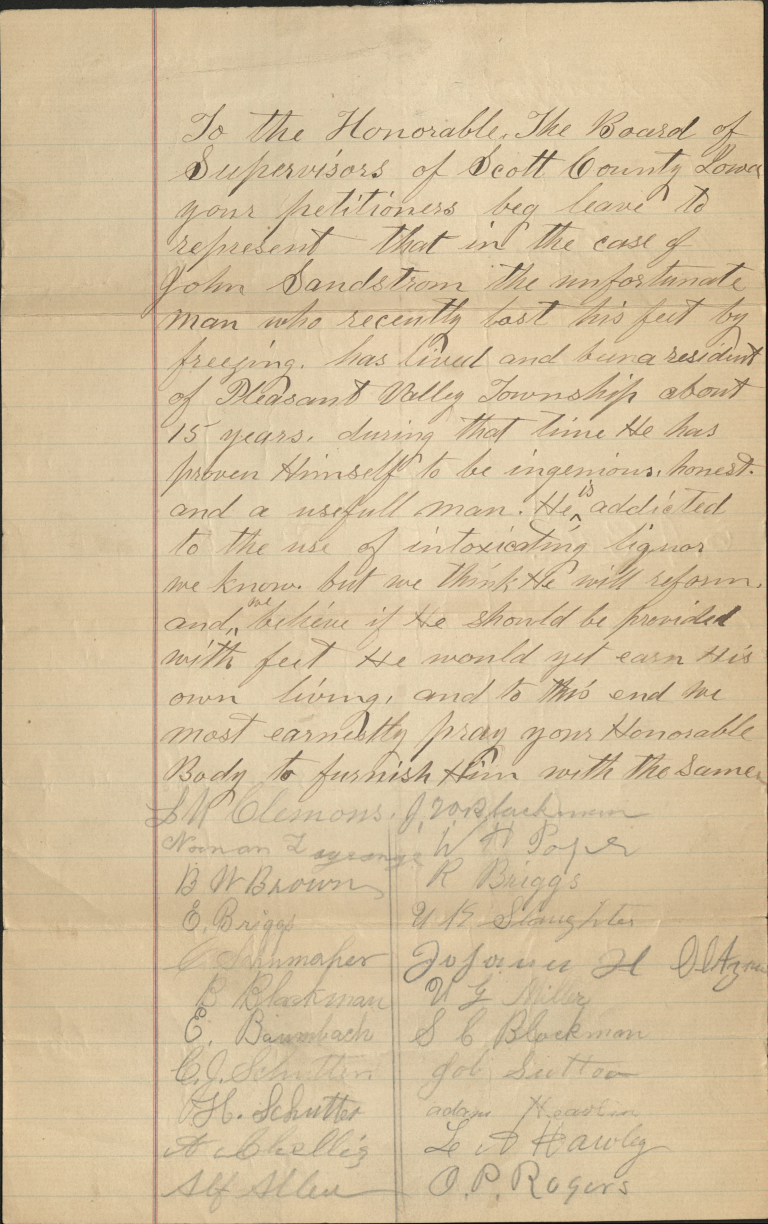 To the Honorable. The Board of
Supervisors of Scott County Iowa
your petitioners beg leave to
represent that in the case of
John Sandstrom the unfortunate
man who recently lost his feet by
freezing. has lived and been a resident
of Pleasant Valley Township about
15 years. during that time He has
proven Himself to be ingenious. honest.
and a usefull man. He is addicted
to the use of intoxicating liquor
we know. but we think He will reform.
and, we believe if He should be provided
with feet He would yet earn His
own living, and to this end we
most earnestly pray your Honorable
Body to furnish Him with the same
Clemons. J. W. Blackman
Norman W H Pope
B W Brown R Briggs
E. Briggs Slaughter
H
B Blackman U G Miller
E. Baumbach S C Blackman
C. J. Schutter Job Sutton
H. Schutter adam
A
Alf Allen L A Hawley
O. P. Rogers